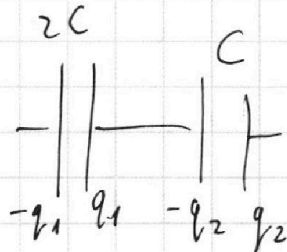 2C
C
-q₁ q₁ -q₂ q₂